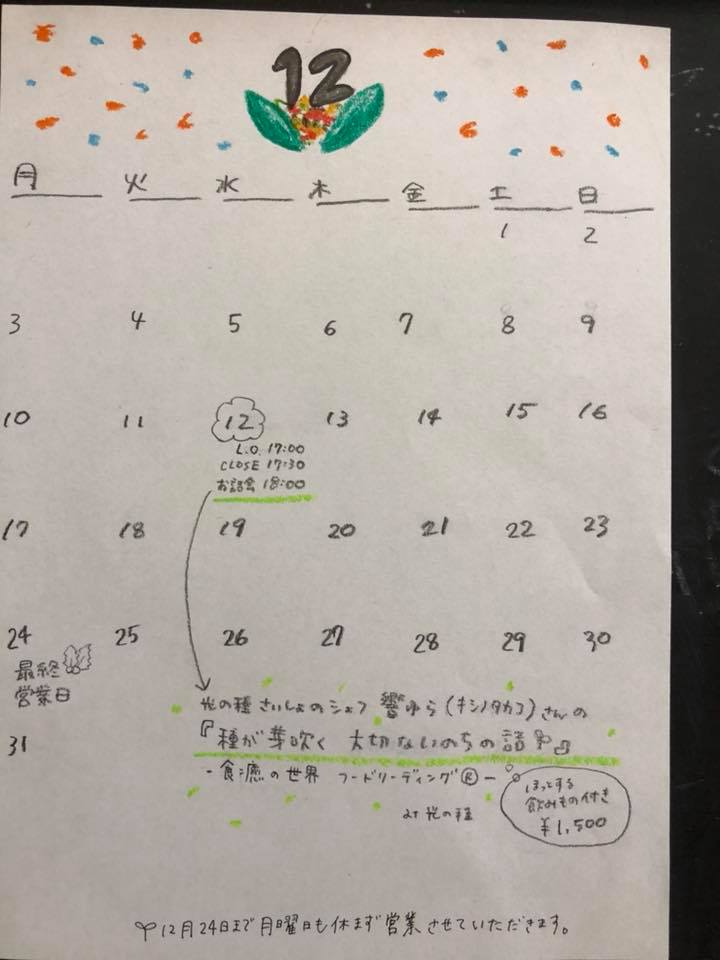 12
月 火 水 木 金 土 日
1 2
3 4 5 6 7 8 9
10 11 12 13 14 15 16
L.O. 17:00
CLOSE 17:30
お話会 18:00
17 18 19 20 21 22 23
24 25 26 27 28 29 30
最終
営業日
31
光の種さいしょのシェフ 響ゆら(キシノタカコ)さんの
『種が芽吹く 大切ないのちの話』
-食癒の世界 フードリーディング®-
at 光の種
ほっとする
飲みもの付き
¥1,500
12月24日まで月曜日も休まず営業させていただきます。